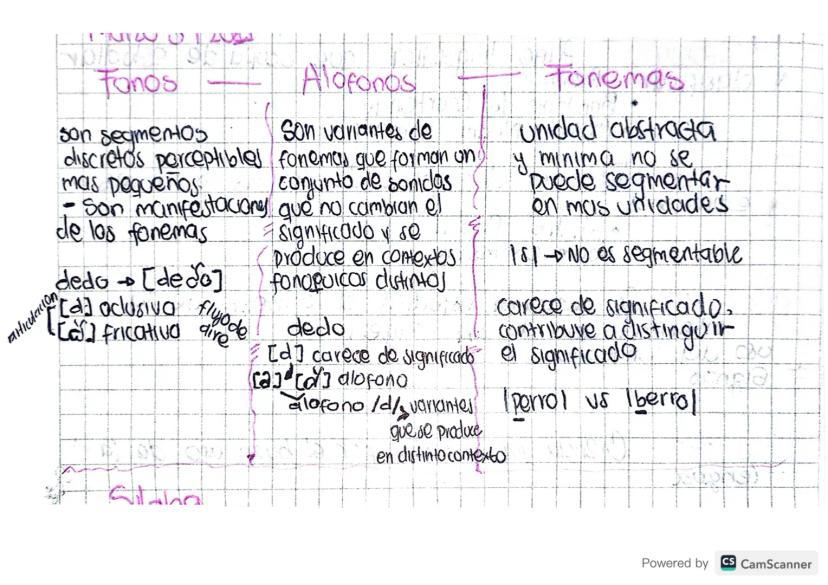 Marzo
Fonos — Alofonos — Fonemas
son segmentos
discretos perceptibles
mas pequeños.
- Son manifestaciones
de los fonemas
dedo → [deðo]
articulacion
[d] oclusiva
[ð] fricativa
flujo de
aire
Son variantes de
fonemas que forman un
conjunto de sonidos
que no cambian el
significado y se
produce en contextos
distintos
dedo
[d] carece de significado
[ð] alofono
alofono /d/ variantes
que se produce
en distinto contexto
unidad abstracta
y minima no se
puede segmentar
en mas unidades
|s| → No es segmentable
carece de significado.
contribuye a distinguir
el significado
|perro| vs |berro|
Silaba
Powered by CS CamScanner